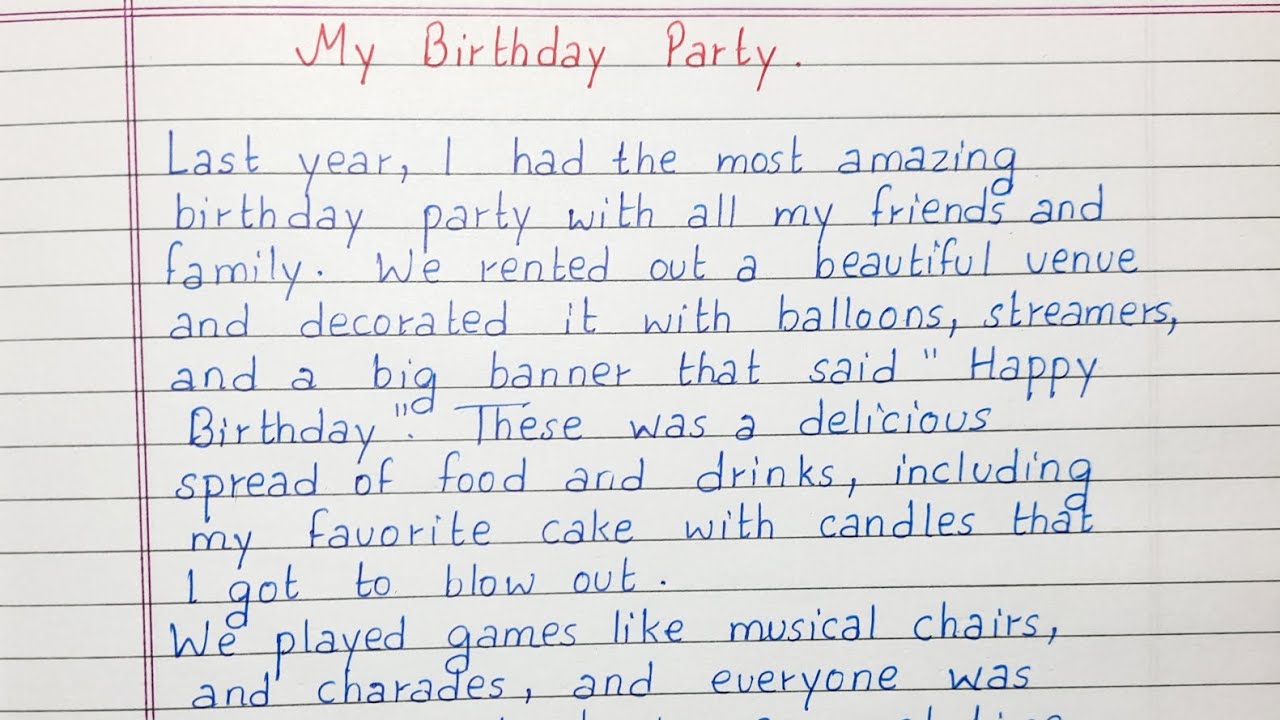 My Birthday Party.
Last year, I had the most amazing
birthday party with all my friends and
family. We rented out a beautiful venue
and decorated it with balloons, streamers,
and a big banner that said " Happy
Birthday". These was a delicious
spread of food and drinks, including
my favorite cake with candles that
I got to blow out.
We played games like musical chairs,
and charades, and everyone was